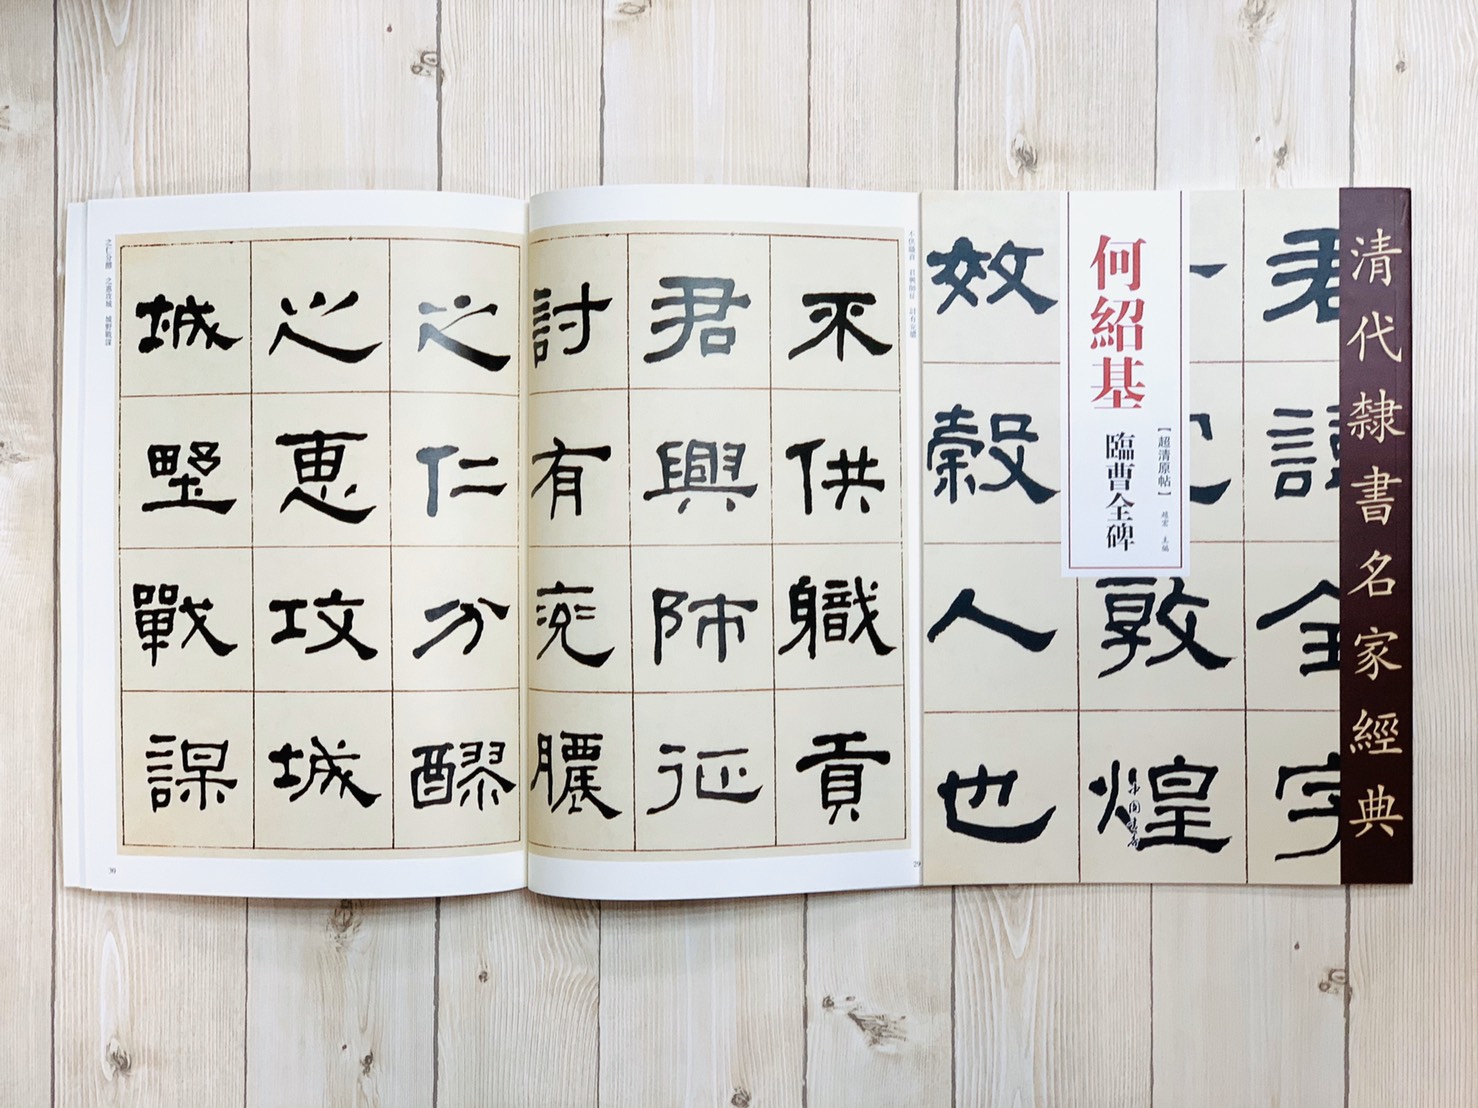 清代隸書名家經典
何紹基
臨曹全碑
【超清原帖】
主編
君諱全字
敦煌
效穀人也
不供職貢
君興師征
討有兗膿
之仁分醪
之惠攻城
城野戰謀
不供職貢 君興師征 討有兗膿
之仁分醪 之惠攻城 城野戰謀
29
30